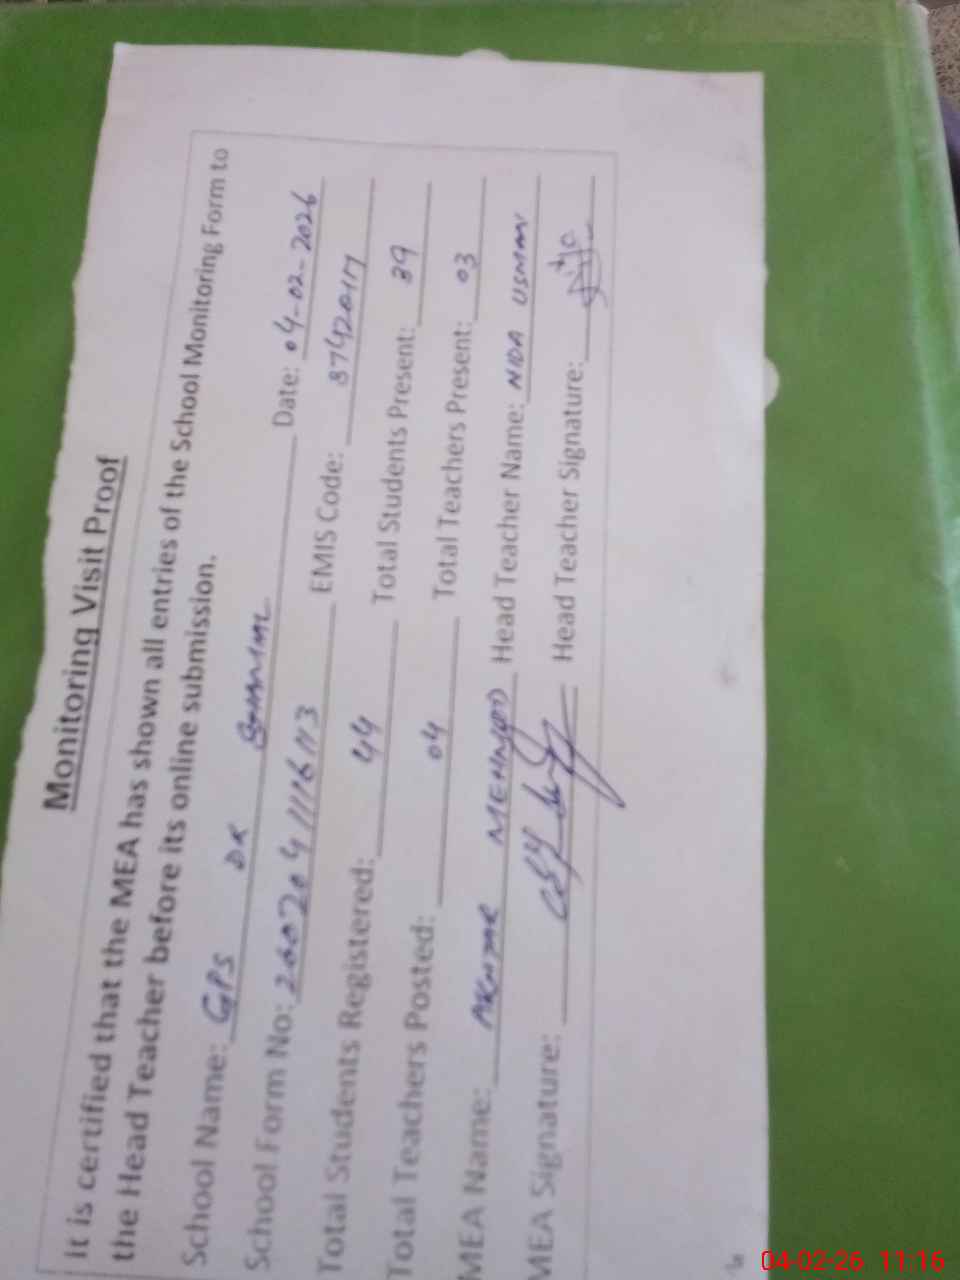 Monitoring Visit Proof
It is certified that the MEA has shown all entries of the School Monitoring Form to
the Head Teacher before its online submission.
School Name: GPS DK Date: 04-02-2026
School Form No: 26020411116113 EMIS Code:
Total Students Registered: 44 Total Students Present: 39
Total Teachers Posted: 04 Total Teachers Present: 03
MEA Name: AKHTAR MEHMOOD Head Teacher Name: NIDA USMAN
MEA Signature: Head Teacher Signature:
04-02-26 11:16